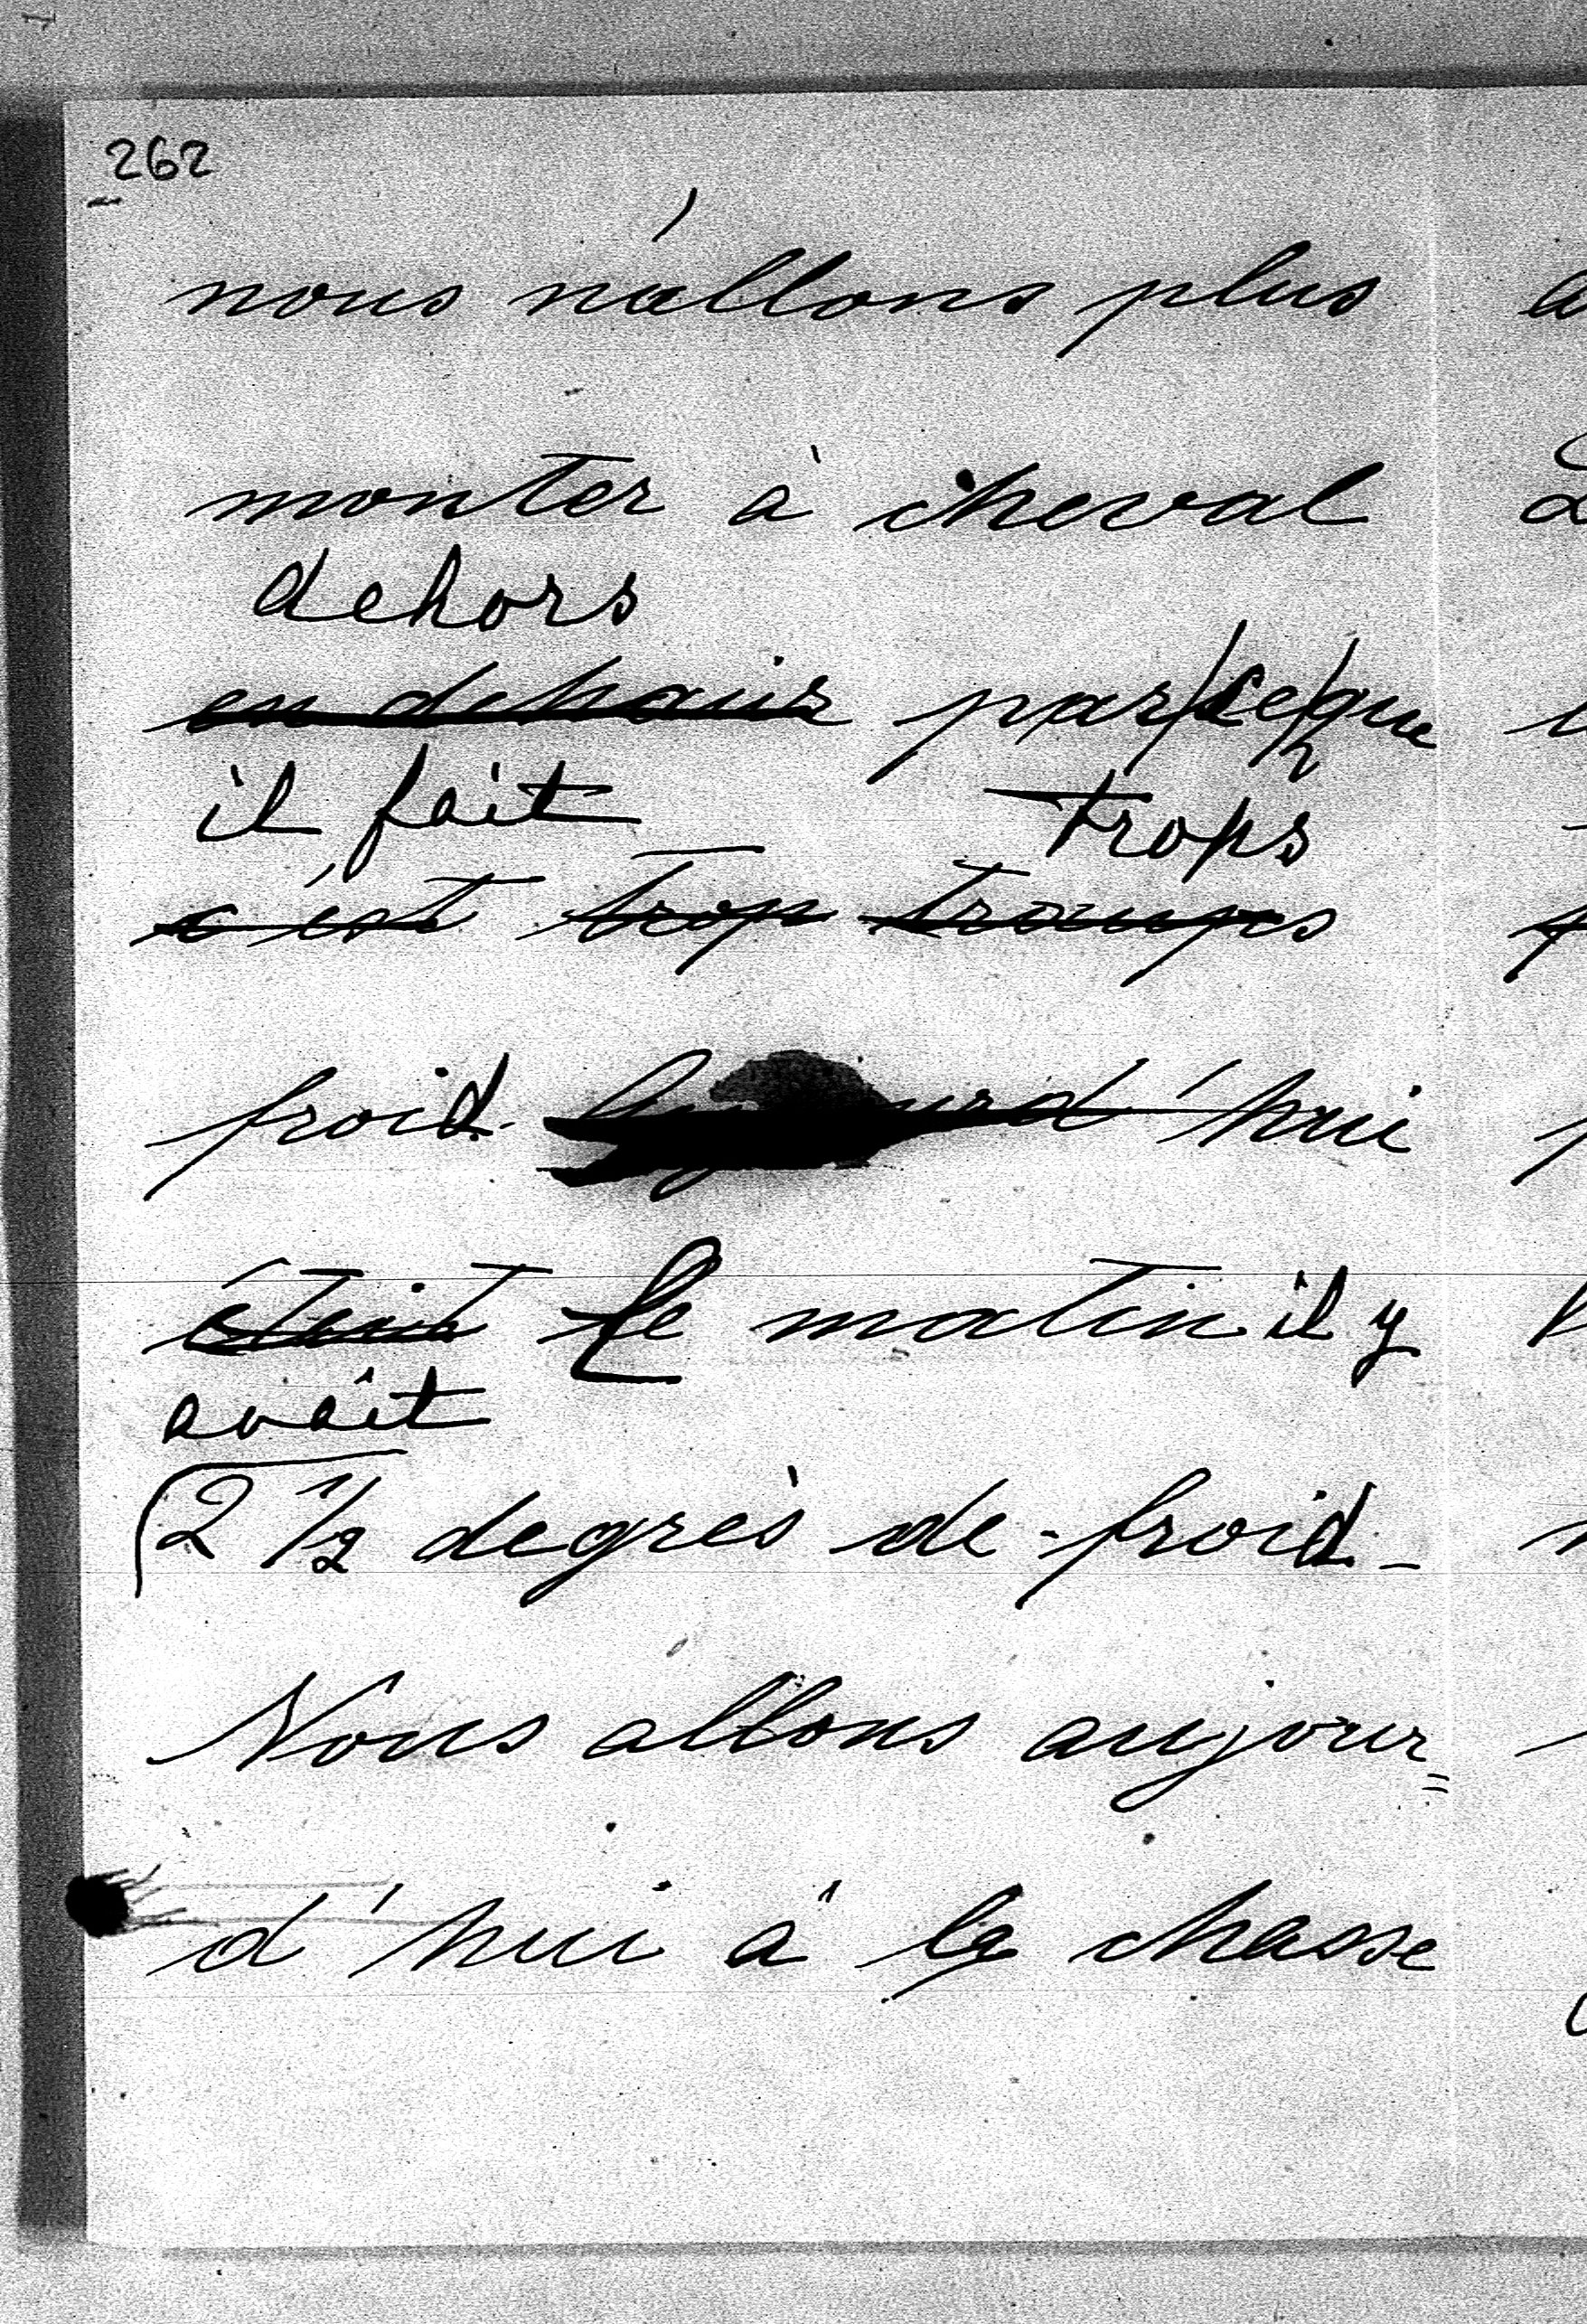 262
nous n'allons plus
monter à cheval
dehors
en dehair parceque
il fait trops
c'est trop troups
froid. d'hui
était Le matin il y
avait
2 1/2 degrès de froid -
Nous allons aujour=
d'hui à la chasse